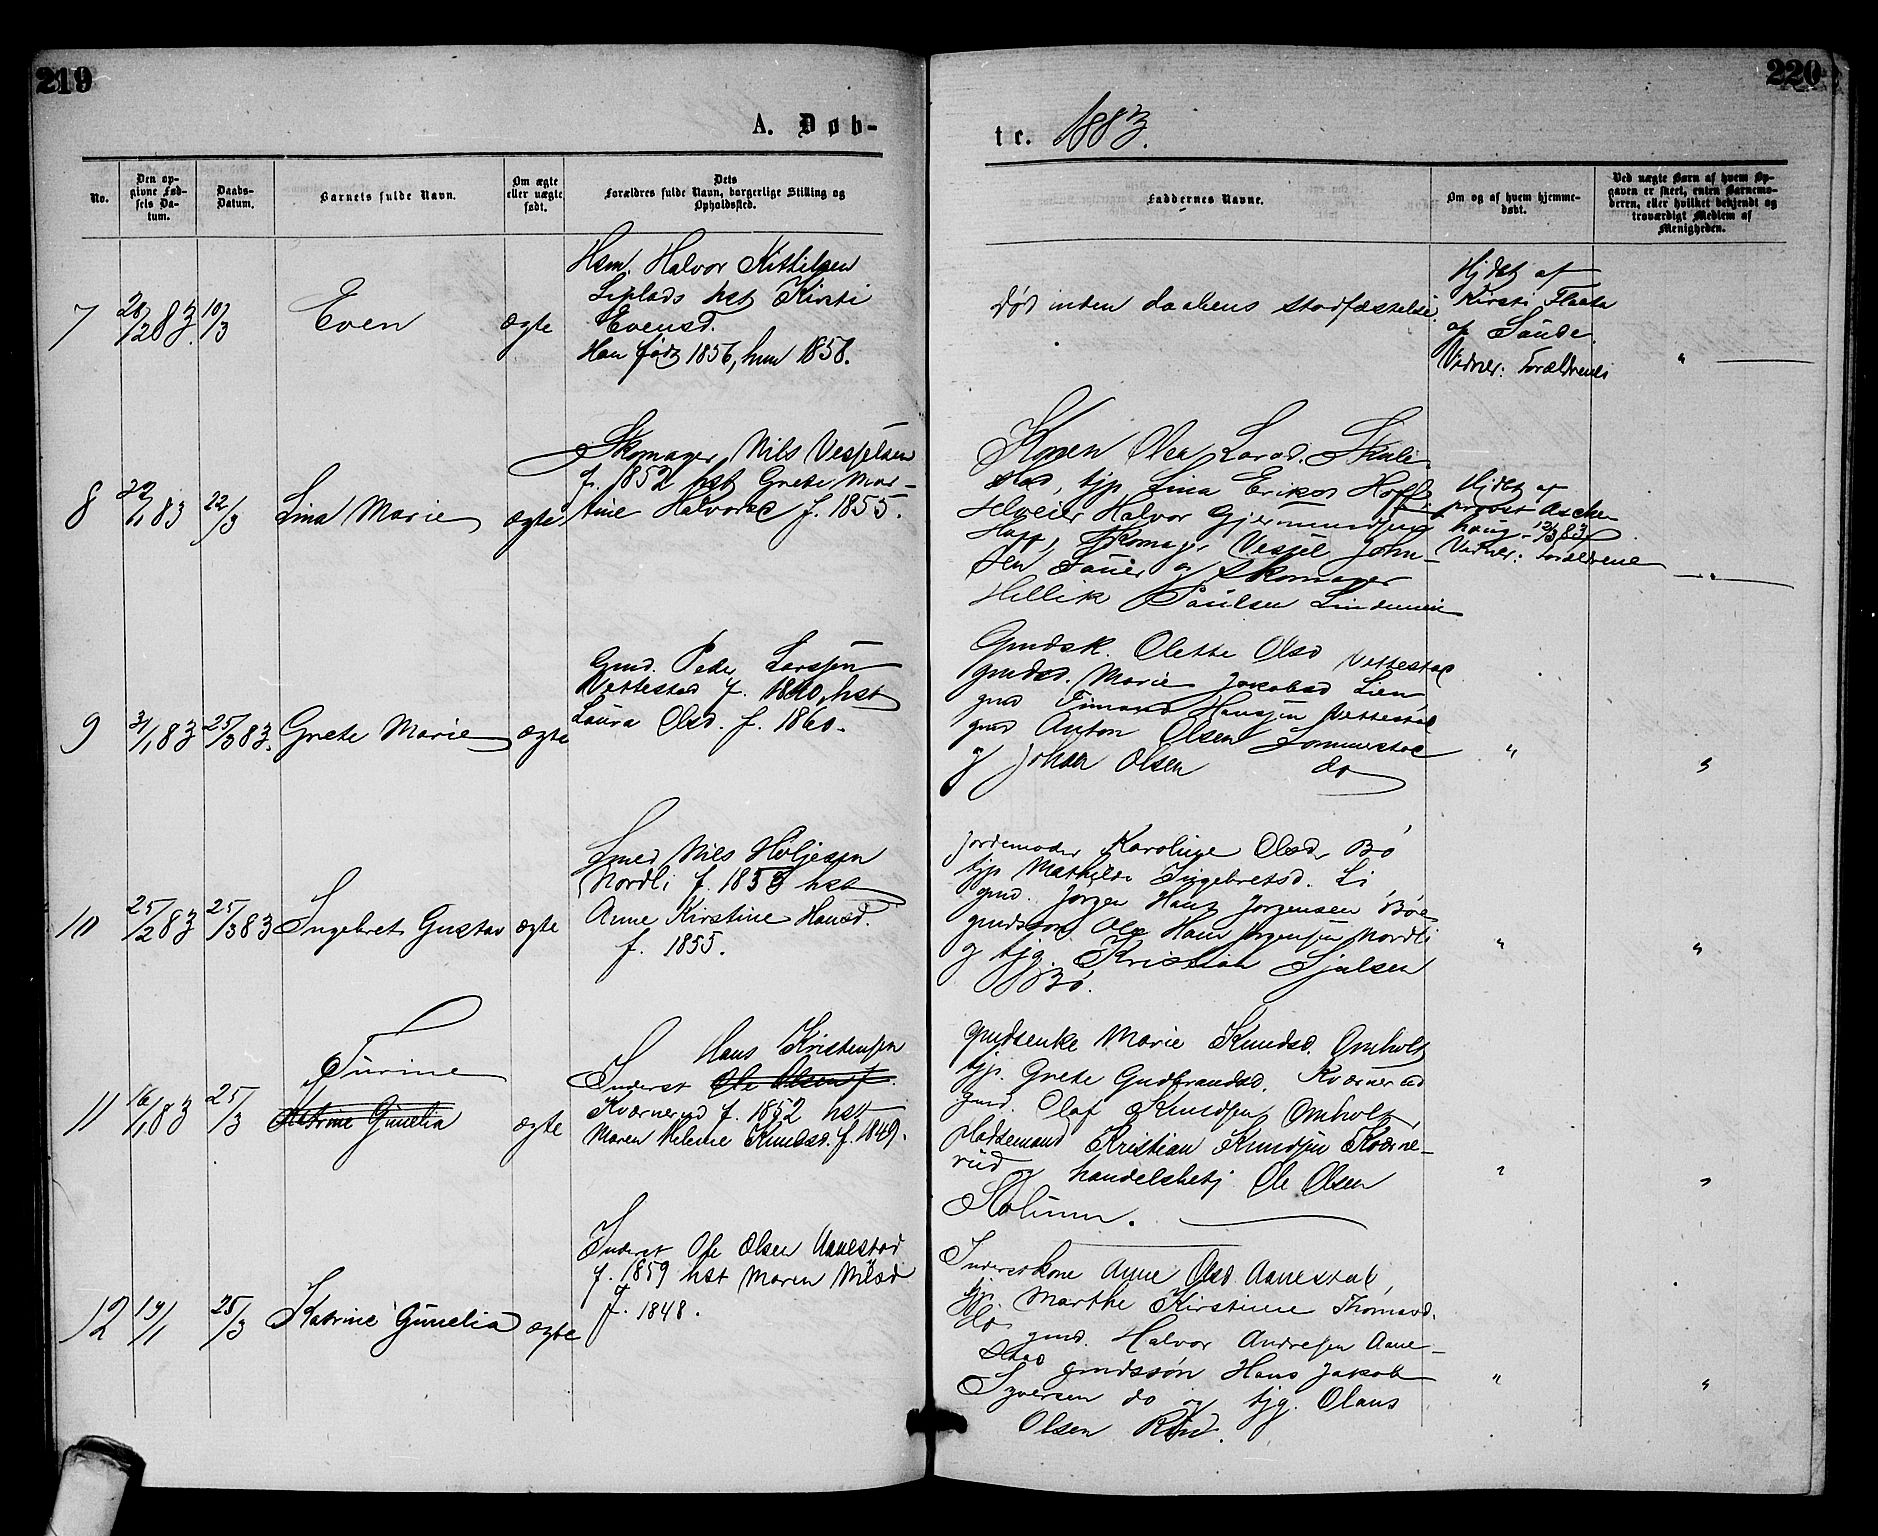 219
220
A. Døb-
te. 1883.
No.
Den op-
givne Fød-
sels Da-
tum.
Daabs-
Datum.
Barnets fulde Navn.
Om ægte
eller uægte
født.
Dets
Forældres fulde Navn, borgerlige Stilling og
Opholdssted.
Faddernes Navne.
Om og af hvem hjemme-
døbt.
Ved uægte Børn af hvem Op-
gaven er skeet, enten Barnemo-
deren, eller hvilket bekjendt og
troværdigt Medlem af
Menigheden.
7 28/2 83. 10/3 Even ægte
Hsm. Halvor Kittilsen
hst Kirsti
Evensd.
Han født 1856, hun 1858.
død inden daabens stadfæstelse.
Hjdbt af
Kirsti Flaata
af Saude.
Vidner: Forældrene
"
8 83 22/3 Lina Marie ægte
Skomager Nils Vesselsen
f. 1852 hst Grete Mar-
tine Halvorsd f. 1855.
Konen Olea Larsd.
tjp Lina Eriksd Hoff
Halvor Gjermundsen
Hoff, Skomager Vessel John-
sen, Sauer og Skomager
Hellik Paulsen
Hjdbt af
provst Aschen
houg 12/3 83
Vidner: Forældrene
"
9 31/1 83 25/3 83. Grete Marie ægte
Gmd. Peder Larssen
Vettestad f. 1840, hst
Laura Olsd. f. 1860.
Gmdsk. Olette Olsd Vettestad
gmdsd. Marie Jakobsd Lien
gmd Hanssen Vettestad
gmd Anton Olsen Sommerstad
og Johan Olsen do
"
"
10 25/2 83 25/3 83 Ingebret Gustav ægte
Smed Nils Høljesen
Nordli f. 1853 hst
Anne Kirstine Hansd.
f. 1855.
Jordemoder Karoline Olsd, Bø
tjp Mathilde Ingebretsd. Li
gmd. Jørgen Hans Jørgensen Bøe
gmdssøn Ole Hans Jørgensen Nordli
og tjg. Kristian
Bø.
"
"
11 16/1 83 25/3
Turine
Katrine Gunelia
ægte
Hans Kristensen
Inderst Ole Olsen f.
Kværnerud f. 1852 hst
Maren Helene Knudsd. f. 1849.
gmdsenke Marie Knudsd. Omholt
tjp. Grete Gudbrandsd. Kværnerud
gmd. Olaf Knudsen Omholt,
Kristian Knudsen Kværne-
rud og handelsbetj. Ole Olsen
Kolium.
"
"
12 25/3 Katrine Gunelia ægte
Inderst Ole Olsen Aanestad
f. 1859 hst Maren Nilsd
f. 1848.
Inderstkone Anne Olsd Aanestad,
tjp. Marthe Kirstine Thomasd.
do gmd. Halvor Andresen Aane-
stad gmdssøn Hans Jakob
Syversen do og tjg. Olaus
Olsen
"
"